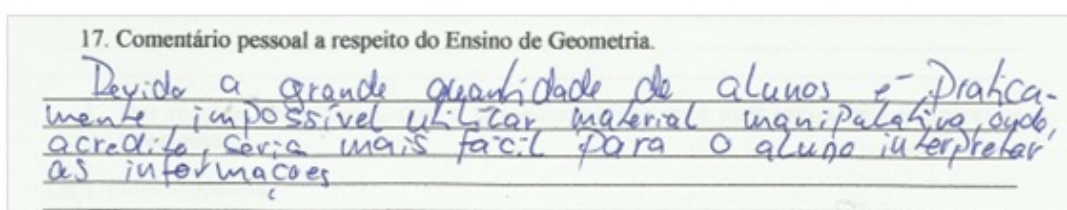 17. Comentário pessoal a respeito do Ensino de Geometria.
Devido a grande quantidade de alunos é pratica-
mente impossível utilizar material manipulativo, onde,
acredito, seria mais fácil para o aluno interpretar
as informações